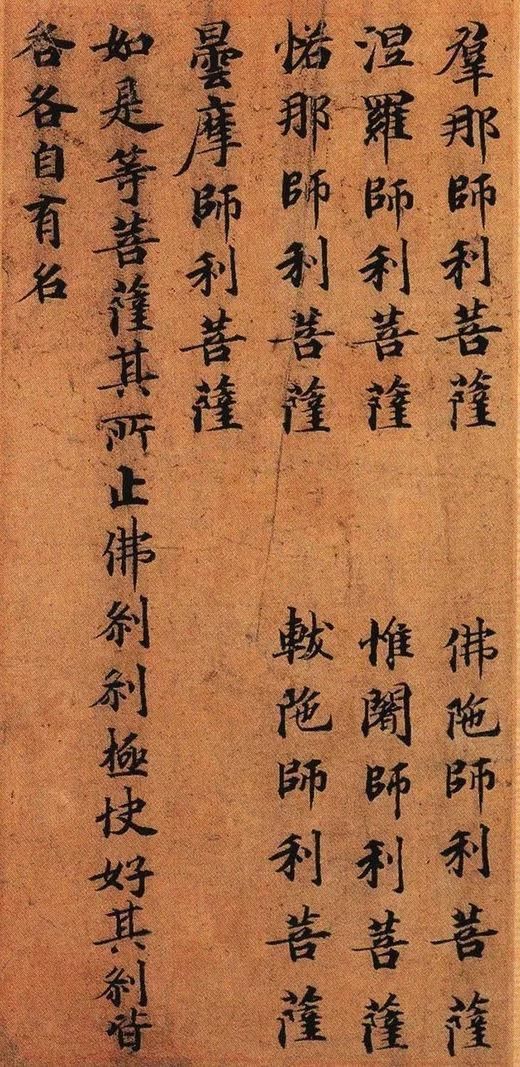 羣那師利菩薩 佛陁師利菩薩
涅羅師利菩薩 惟闍師利菩薩
那師利菩薩 軷陁師利菩薩
曇摩師利菩薩
如是等菩薩其所止佛剎剎極快好其剎皆
各各自有名